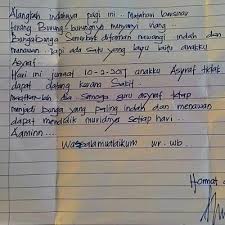 Alangkah indahnya pagi ini. Matahari bersinar
terang Burung-burungnya menyanyi riang
bunga-bunga Semerbak ditaman mewangi indah dan
menawan. tapi ada Satu yang layu yaitu anakku
Asyraf
Hari ini jumat 10-2-2017 anakku Asyraf tidak
dapat datang karena Sakit
ada Semoga guru asyraf tetap
menjadi bunga yang paling indah dan menawan
dapat mendidik muridnya setiap hari..
Aaminn...
Wassalamualaikum wr. wb.
Hormat